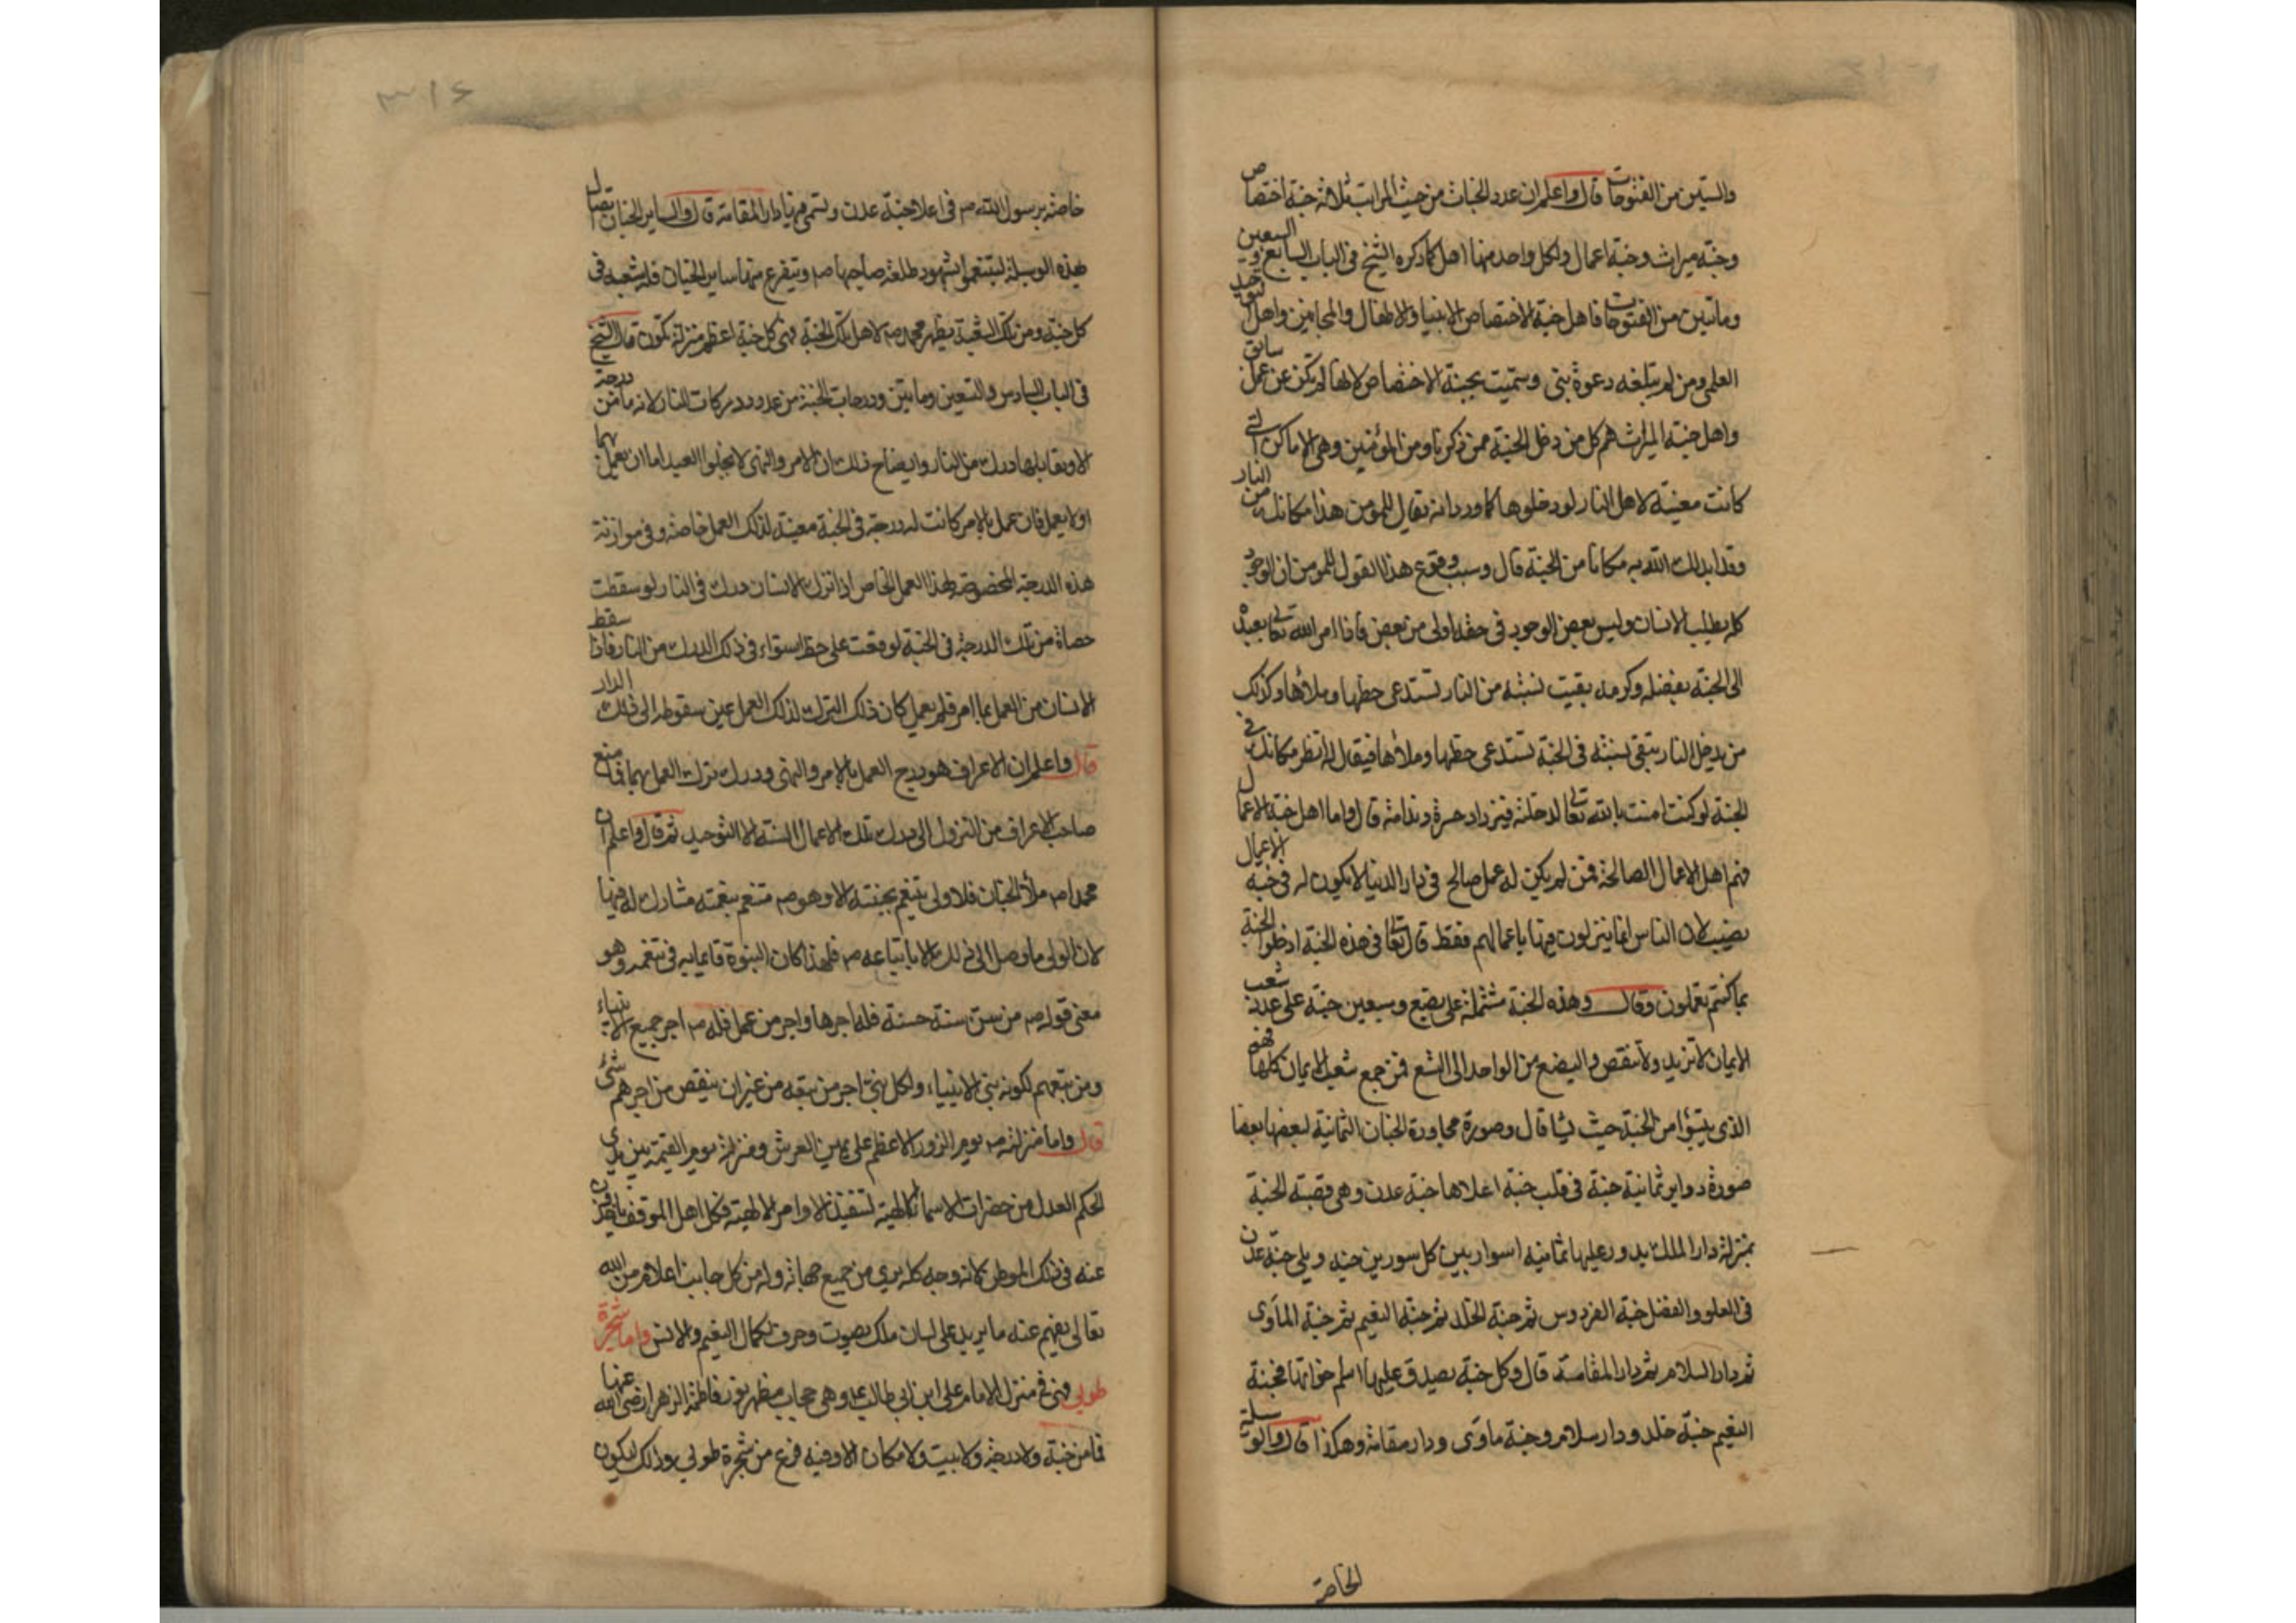 والستين من الفتوحات قال واعلم ان عدد الجنات من حيث المراتب ثلاثة جنة اختصاص
وجنة ميراث وجنة اعمال ولكل واحد منها اهل كما ذكره الشيخ في الباب السابع والسبعين
ومائتين من الفتوحات فاهل جنة الاختصاص الانبيا والاطفال والمجانين واهل التوحيد
العلمي ومن لم يبلغه دعوة نبي وسميت بجنة الاختصاص لانها لم تكن عن عمل سابق
واهل جنة الميراث هم كل من دخل الجنة ممن ذكرنا ومن المؤمنين وهي الاماكن التي
كانت معينة لاهل النار لو دخلوها كما ورد انه يقال للمؤمن هذا مكانك من النار
وقد ابدلك الله به مكانا من الجنة قال وسبب وقوع هذا القول للمومن ان الوجود
كله يطلب الانسان وليس بعض الوجود في حقه اولى من بعض فاذا امر الله تعالى بعبده
الى الجنة بفضله وكرمه بقيت نسبته من النار تستدعي حظها وملأها وكذلك
من يدخل النار تبقى نسبته في الجنة تستدعي حظها وملأها فيقال له انظر مكانك في
الجنة لو كنت امنت بالله تعالى لدخلته فيزداد حسرة وندامة قال واما اهل جنة الاعمال
فهم اهل الاعمال الصالحة فمن لم يكن له عمل صالح في دار الدنيا لا يكون له في جنة الاعمال
نصيب لان الناس انما ينزلون فيها باعمالهم فقط قال تعالى في هذه الجنة ادخلوا الجنة
بما كنتم تعملون وقال وهذه الجنة مشتملة على بضع وسبعين جنة على عدد شعب
الايمان لا تزيد ولا تنقص والبضع من الواحد الى التسع فمن جمع شعب الايمان كلها فهو
الذي يتبوأ من الجنة حيث يشا قال وصورة مجاورة الجنان الثمانية لبعضها بعضا
صورة دواير ثمانية جنة في قلب جنة اعلاها جنة عدن وهي قصبة الجنة
بمنزلة دار الملك يدور عليها ثمانية اسوار بين كل سورين جنة ويلي جنة عدن
في العلو والفضل جنة الفردوس ثم جنة الخلد ثم جنة النعيم ثم جنة المأوى
ثم دار السلام ثم دار المقامة قال وكل جنة يصدق عليها اسم خواتها فجنة
النعيم جنة خلد ودار سلام وجنة ماوى ودار مقامة وهكذا قال والوسيلة
الخاصة
٣١٤
خاصة برسول الله صم في اعلا جنة عدن وتسمى فيها دار المقامة قال ولساير الجنان اتصال
بهذه الوسيلة ليتنعموا بشهود طلعة صاحبها صم وتتفرع منها ساير الجنان فله شعبة في
كل جنة ومن تلك الشعبة يظهر محمد صم لاهل تلك الجنة فهي في كل جنة اعظم منزلة تكون قال الشيخ
في الباب السادس والتسعين ومائتين ودرجات الجنة من عدد دركات النار لانه ما من درجة
الا ويقابلها درك من النار وايضاح ذلك ان الامر والنهي لا يخلو العبد اما ان يعمل بهما
او لا يعمل فان عمل بالامر كانت له درجة في الجنة معينة لذلك العمل خاصة وفي موازنة
هذه الدرجة المخصوصة لهذا العمل الخاص اذا تركه الانسان درك في النار لو سقطت
حصاة من تلك الدرجة في الجنة لوقعت على خط استواء في ذلك الدرك من النار فاذا سقط
الانسان من العمل بما امر فلم يعمل كان ذلك الترك لذلك العمل عين سقوطه الى ذلك الدار
قال واعلم ان الاعراف هو درج العمل بالامر والنهي ودرك ترك العمل بهما فما منع
صاحب الاعراف من النزول الى درك تلك الاعمال السيئة الا التوحيد ثم قال واعلم ان
محمدا صم ملأ الجنان فلا ولي يتنعم بجنته الا وهو صم متنعم بنعمته مشارك له فيها
لان الولي ما وصل الى ذلك الا باتباعه صم فلهذا كان النبوة قائما به في تنعمه وهو
معنى قوله صم من سن سنة حسنة فله اجرها واجر من عمل فله صم اجر جميع الانبياء
ومن تبعهم لكونه نبي الانبياء ولكل نبي اجر من تبعه من غير ان ينقص من اجرهم شئ
قال واما منزلته صم يوم الزور الاعظم على يمين العرش ومنزلته يوم القيمة بين يدي
الحكم العدل من حضرات الاسماء الالهية لتنفيذ الاوامر الالهية فكل اهل الموقف ياخذون
عنه في ذلك الموطن كانه وجه كله يرى من جميع جهاته وله من كل جانب اعلام من الله
تعالى يفهم عنه ما يريد على لسان ملك بصوت وحرف لكمال النعيم والانس واما شجرة
طوبى فهي في منزل الامام علي ابن ابي طالب وهي حجاب مظهر نور فاطمة الزهرا رضي الله عنها
فما من جنة ولا درجة ولا بيت ولا مكان الا وفيه فرع من شجرة طوبى وذلك ليكون